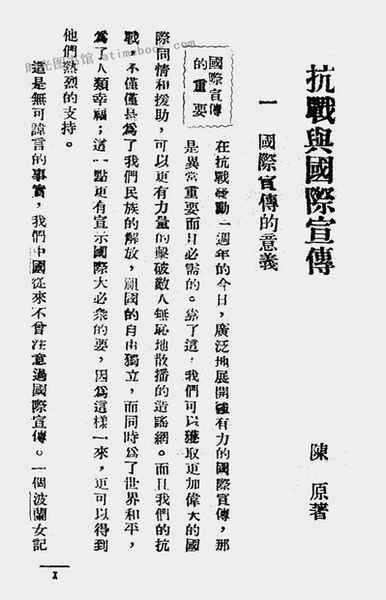 抗戰與國際宣傳
陳原著
一 國際宣傳的意義
國際宣傳
的重要
在抗戰發動一週年的今日,廣泛地展開強有力的國際宣傳,那
是異常重要而且必需的。靠了這,我們可以獲取更加偉大的國
際同情和援助,可以更有力量的擊破敵人無恥地散播的造謠網。而且我們的抗
戰,不僅僅是爲了我們民族的解放,祖國的自由獨立,而同時爲了世界和平,
爲了人類幸福;這一點更有宣示國際大必衆的要,因爲這樣一來,更可以得到
他們熱烈的支持。
這是無可諱言的事實,我們中國從來不曾注意過國際宣傳。一個波蘭女記
1
時光图书馆 atimebook.com